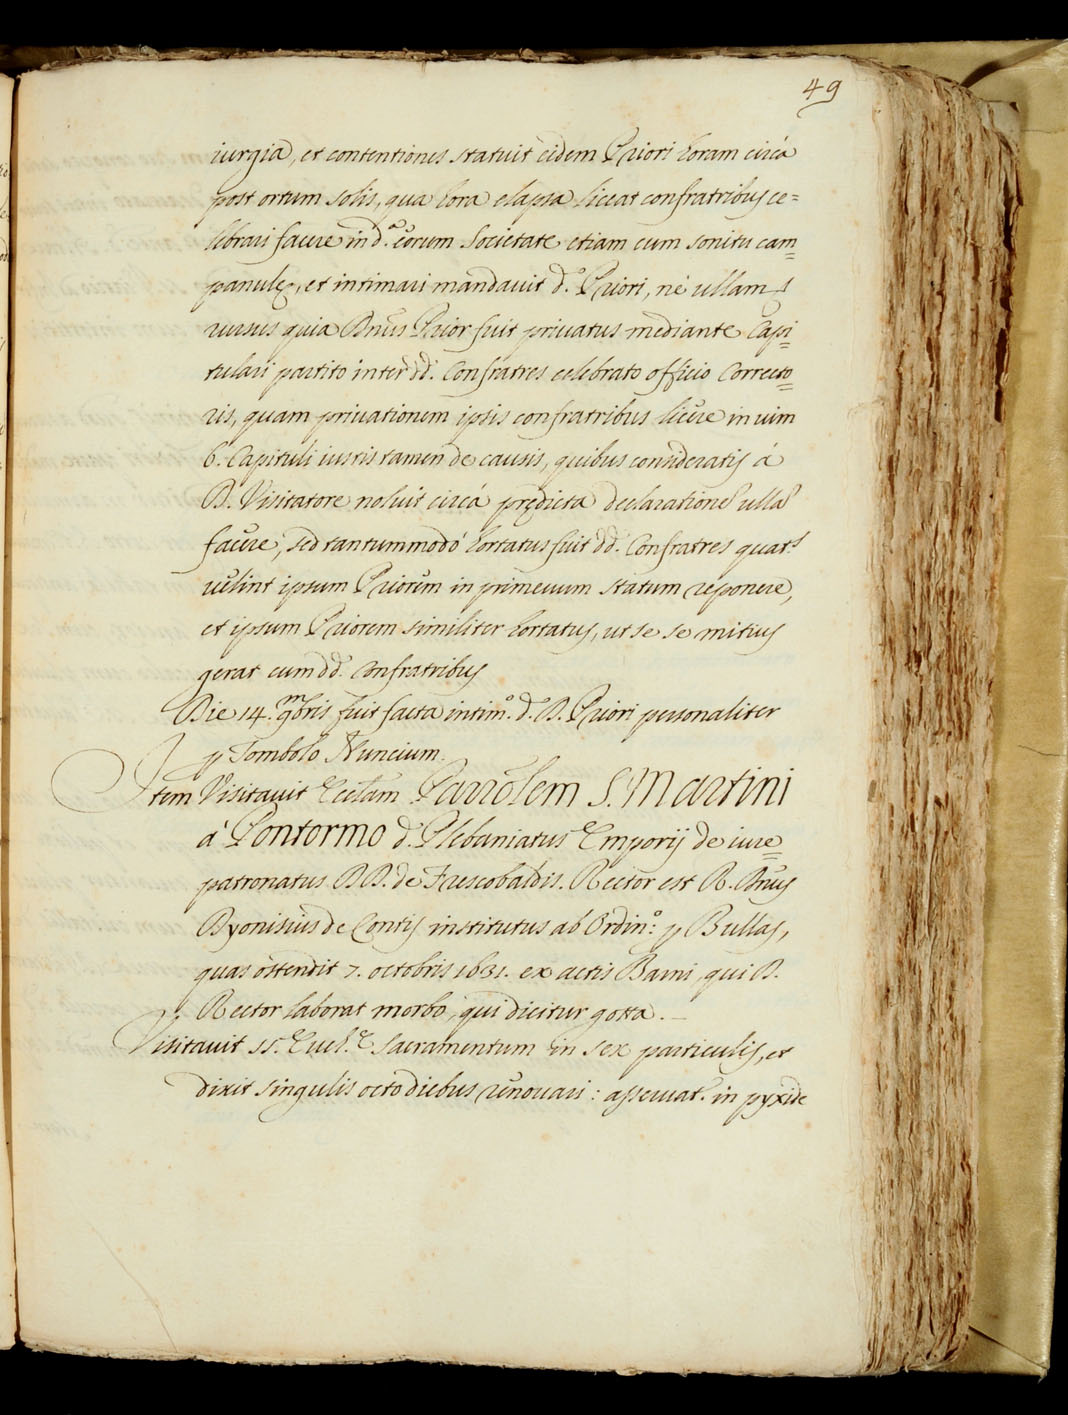 49
iurgia, et contentiones statuit eidem Priori horam circà
post ortum solis, qua hora elapsa liceat confratribus ce=
lebrari facere in d.ª eorum Societate etiam cum sonitu cam=
panulę, et intimari mandavit d.º Priori, nè ullam
rursus quia Dnus Prior fuit privatus mediante Capi=
tulari partito inter dd. Confratres celebrato officio Correcto=
ris, quam privationem ipsis confratribus licere in vim
6. Capituli iustis tamen de causis, quibus consideratis à
D. Visitatore noluit circà prędicta declarationē ullā
facere, sed tantummodò hortatus fuit dd. Confratres quat.s
velint ipsum Priorem in primevum statum reponere,
et ipsum Priorem similiter hortatus, ut se se mitius
gerat cum dd. confratribus
Die 14. 9mbris fuit facta intim.º d.º D. Priori personaliter
p Tombolo Nuncium.
Item Visitavit Ecclam Parrōlem S. Martini
à Pontormo d.º Plebaniatus Emporij de iure=
patronatus DD. de Frescobaldis. Rector est R. Dnus
Dyonisius de Contis institutus ab Ordin.º p Bullas,
quas ostendit 7. octobris 1631. ex actis Barni, qui D.
Rector laborat morbo, qui dicitur gotta.
Visitavit SS. Euch.ę Sacramentum in sex particulis, et
dixit singulis octo diebus renovari: asservat.r in pyxide